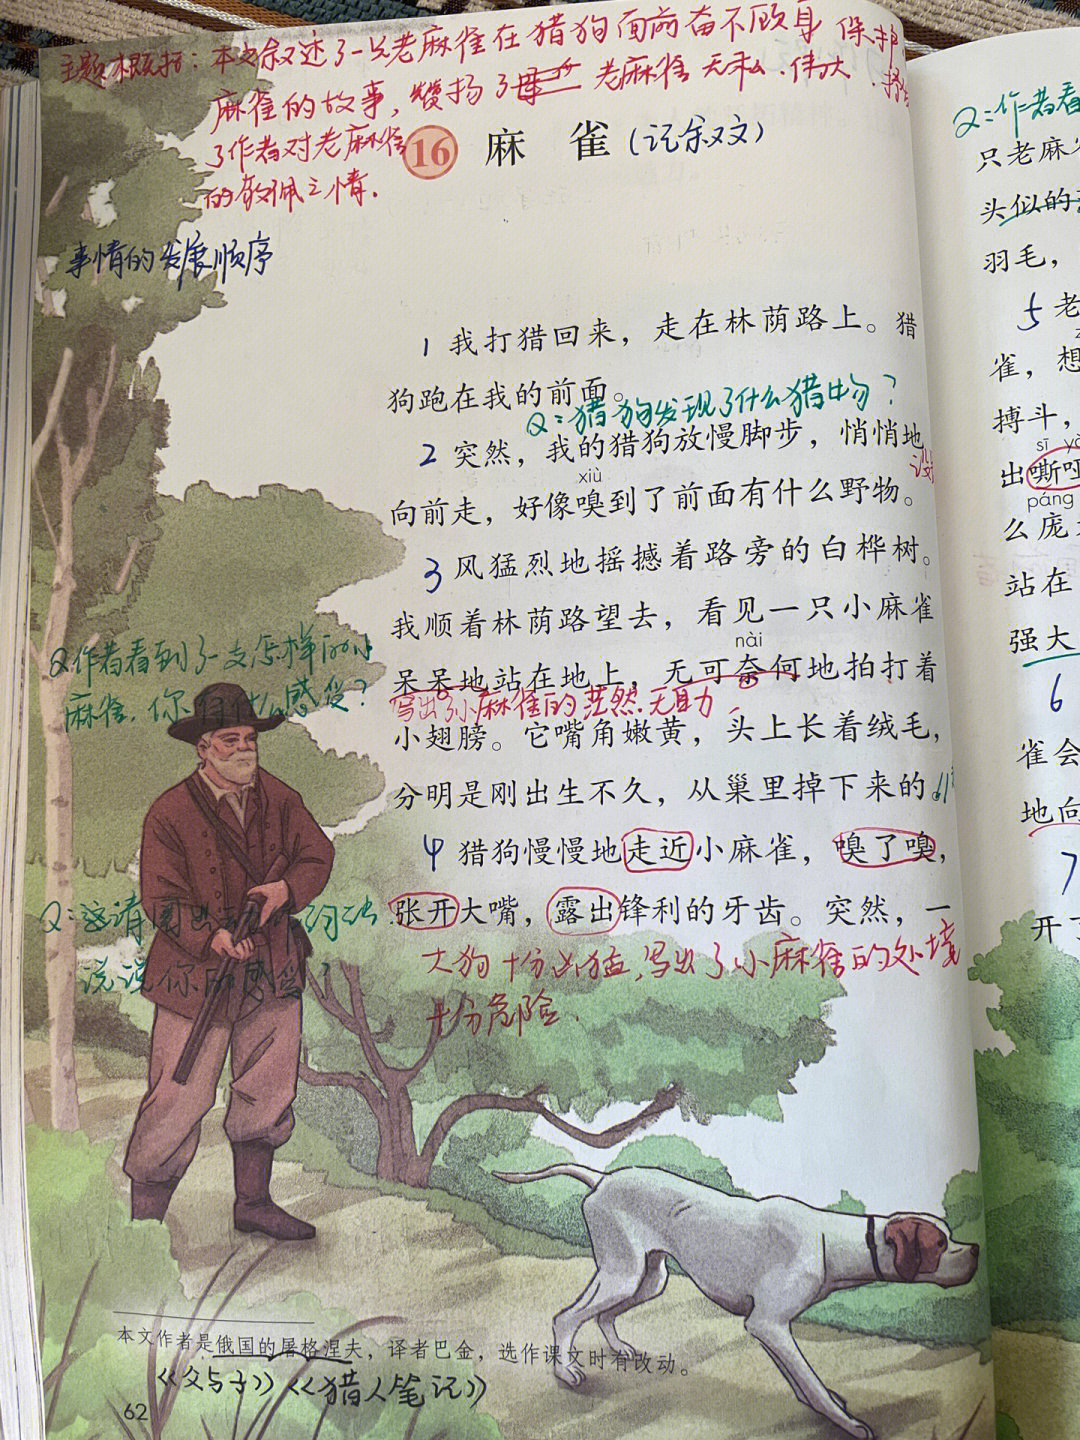 主题概括：本文叙述了一只老麻雀在猎狗面前奋不顾身 保护
麻雀的故事，赞扬了 老麻雀无私、伟大
了作者对老麻雀
的敬佩之情.
16 麻 雀 (记叙文)
事情的发展顺序
1 我打猎回来，走在林荫路上。猎
狗跑在我的前面。
Q：猎狗发现了什么猎物？
2 突然，我的猎狗放慢脚步，悄悄地
xiù
向前走，好像嗅到了前面有什么野物。
3 风猛烈地摇撼着路旁的白桦树。
我顺着林荫路望去，看见一只小麻雀
nài
呆呆地站在地上，无可奈何地拍打着
写出了小麻雀的茫然、无助
小翅膀。它嘴角嫩黄，头上长着绒毛，
分明是刚出生不久，从巢里掉下来的。
Q作者看到了一支怎样的小
麻雀，你有什么感受？
4 猎狗慢慢地走近小麻雀，嗅了嗅，
张开大嘴，露出锋利的牙齿。突然，一
大狗十分凶猛，写出了小麻雀的处境
十分危险.
Q：请圈出动作的词
说说你的感受？
本文作者是俄国的屠格涅夫，译者巴金，选作课文时有改动。
《父与子》《猎人笔记》
62
Q：作者看
只老麻雀
头似的
羽毛，
5 老
雀，想
搏斗，
sī yǎ
出嘶哑
páng
么庞
站在
强大
6
雀会
地向
7
开了